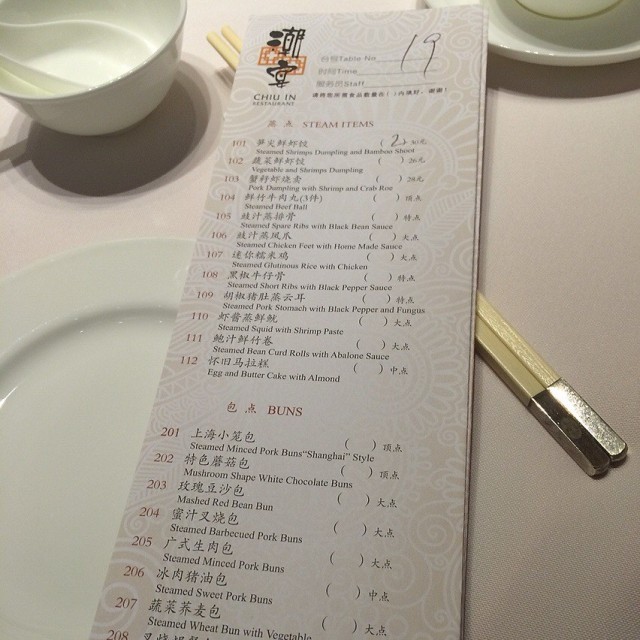 潮宴
CHIU IN
RESTAURANT
台號Table No. 19
时间Time
服务员Staff
蒸 点 STEAM ITEMS
101 笋尖鲜虾饺 ( 2 ) 30元
Steamed Shrimps Dumpling and Bamboo Shoot
102 蔬菜鲜虾饺 ( ) 26元
Vegetable and Shrimps Dumpling
103 蟹籽虾烧卖 ( ) 28元
Pork Dumpling with Shrimp and Crab Roe
104 鲜竹牛肉丸(3件) ( ) 顶点
Steamed Beef Ball
105 豉汁蒸排骨 ( ) 特点
Steamed Spare Ribs with Black Bean Sauce
106 豉汁蒸凤爪 ( ) 大点
Steamed Chicken Feet with Home Made Sauce
107 迷你糯米鸡 ( ) 大点
Steamed Glutinous Rice with Chicken
108 黑椒牛仔骨 ( ) 特点
Steamed Short Ribs with Black Pepper Sauce
109 胡椒猪肚蒸云耳 ( ) 特点
Steamed Pork Stomach with Black Pepper and Fungus
110 虾酱蒸鲜鱿 ( ) 大点
Steamed Squid with Shrimp Paste
111 鲍汁鲜竹卷 ( ) 大点
Steamed Bean Curd Rolls with Abalone Sauce
112 怀旧马拉糕 ( ) 中点
Egg and Butter Cake with Almond
包 点 BUNS
201 上海小笼包 ( ) 顶点
Steamed Minced Pork Buns"Shanghai" Style
202 特色蘑菇包 ( ) 顶点
Mushroom Shape White Chocolate Buns
203 玫瑰豆沙包 ( ) 大点
Mashed Red Bean Bun
204 蜜汁叉烧包 ( ) 大点
Steamed Barbecued Pork Buns
205 广式生肉包 ( ) 大点
Steamed Minced Pork Buns
206 冰肉猪油包 ( ) 中点
Steamed Sweet Pork Buns
207 蔬菜荞麦包 ( ) 大点
Steamed Wheat Bun with Vegetable
208